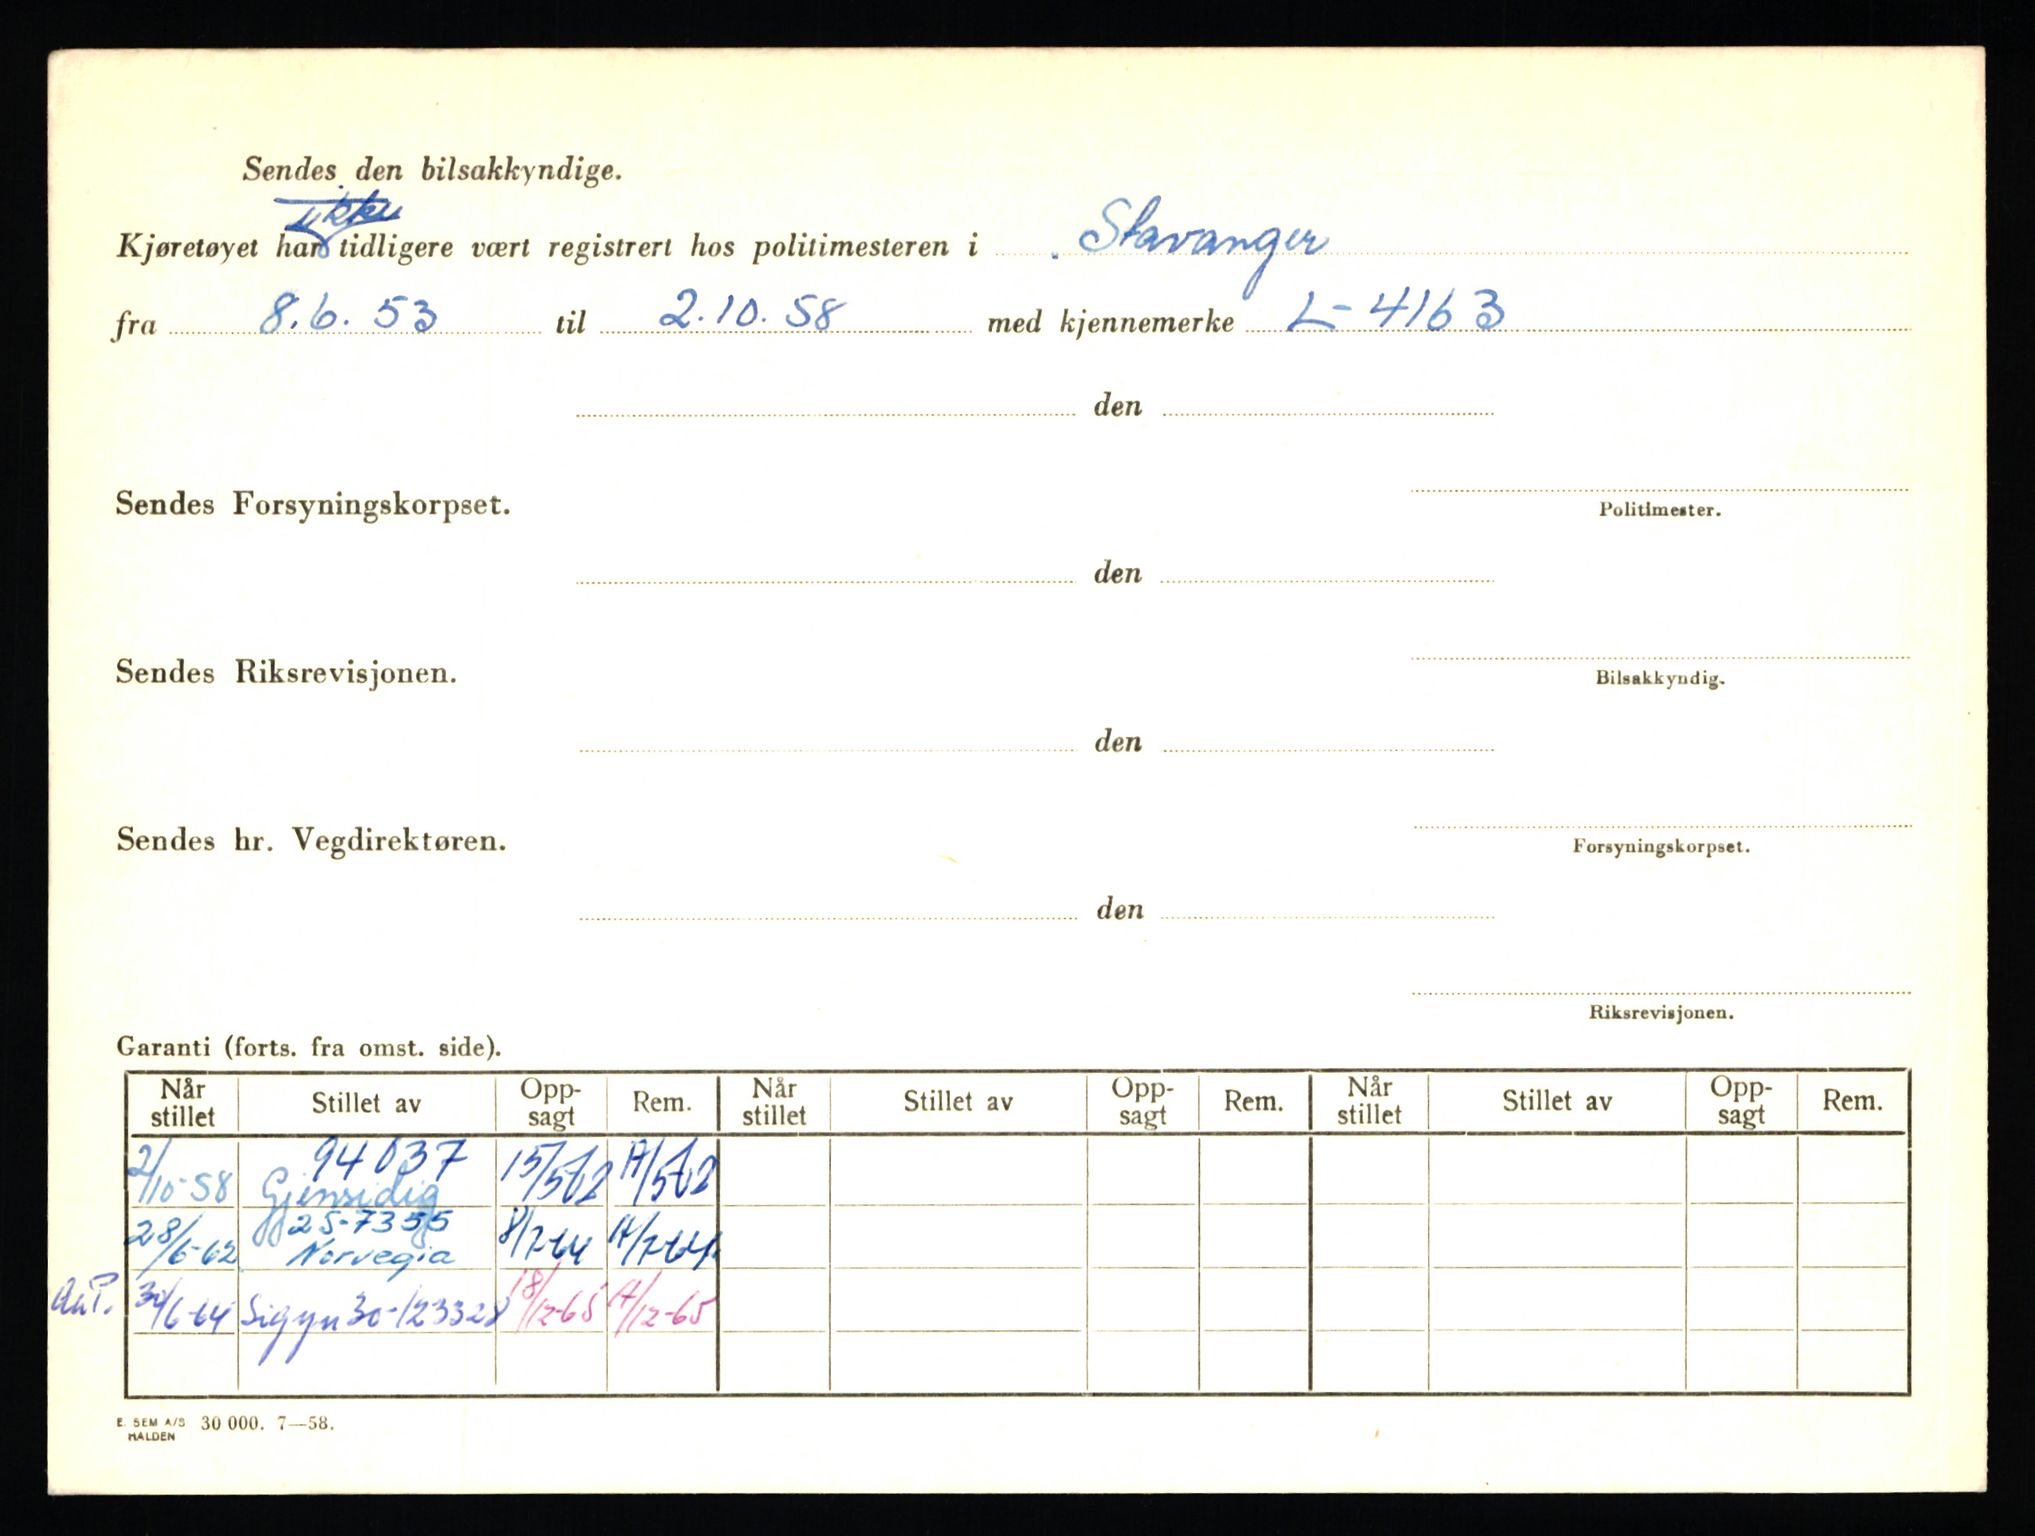 Sendes den bilsakkyndige.
ikke
Kjøretøyet har tidligere vært registrert hos politimesteren i Stavanger
fra 8.6.53 til 2.10.58 med kjennemerke L-4163
den
Sendes Forsyningskorpset.
Politimester.
den
Sendes Riksrevisjonen.
Bilsakkyndig.
den
Sendes hr. Vegdirektøren.
Forsyningskorpset.
den
Riksrevisjonen.
Garanti (forts. fra omst. side).
Når stillet Stillet av Opp-sagt Rem. Når stillet Stillet av Opp-sagt Rem. Når stillet Stillet av Opp-sagt Rem.
2/10-58 94037 Gjensidig 15/5 62 /5 62
28/6-62 25-7355 Norvegia 8/7-64 /7-64
30/6-64 Sigyn 30-123328 18/12-65 /12-65
E. SEM A/S HALDEN 30 000. 7—58.